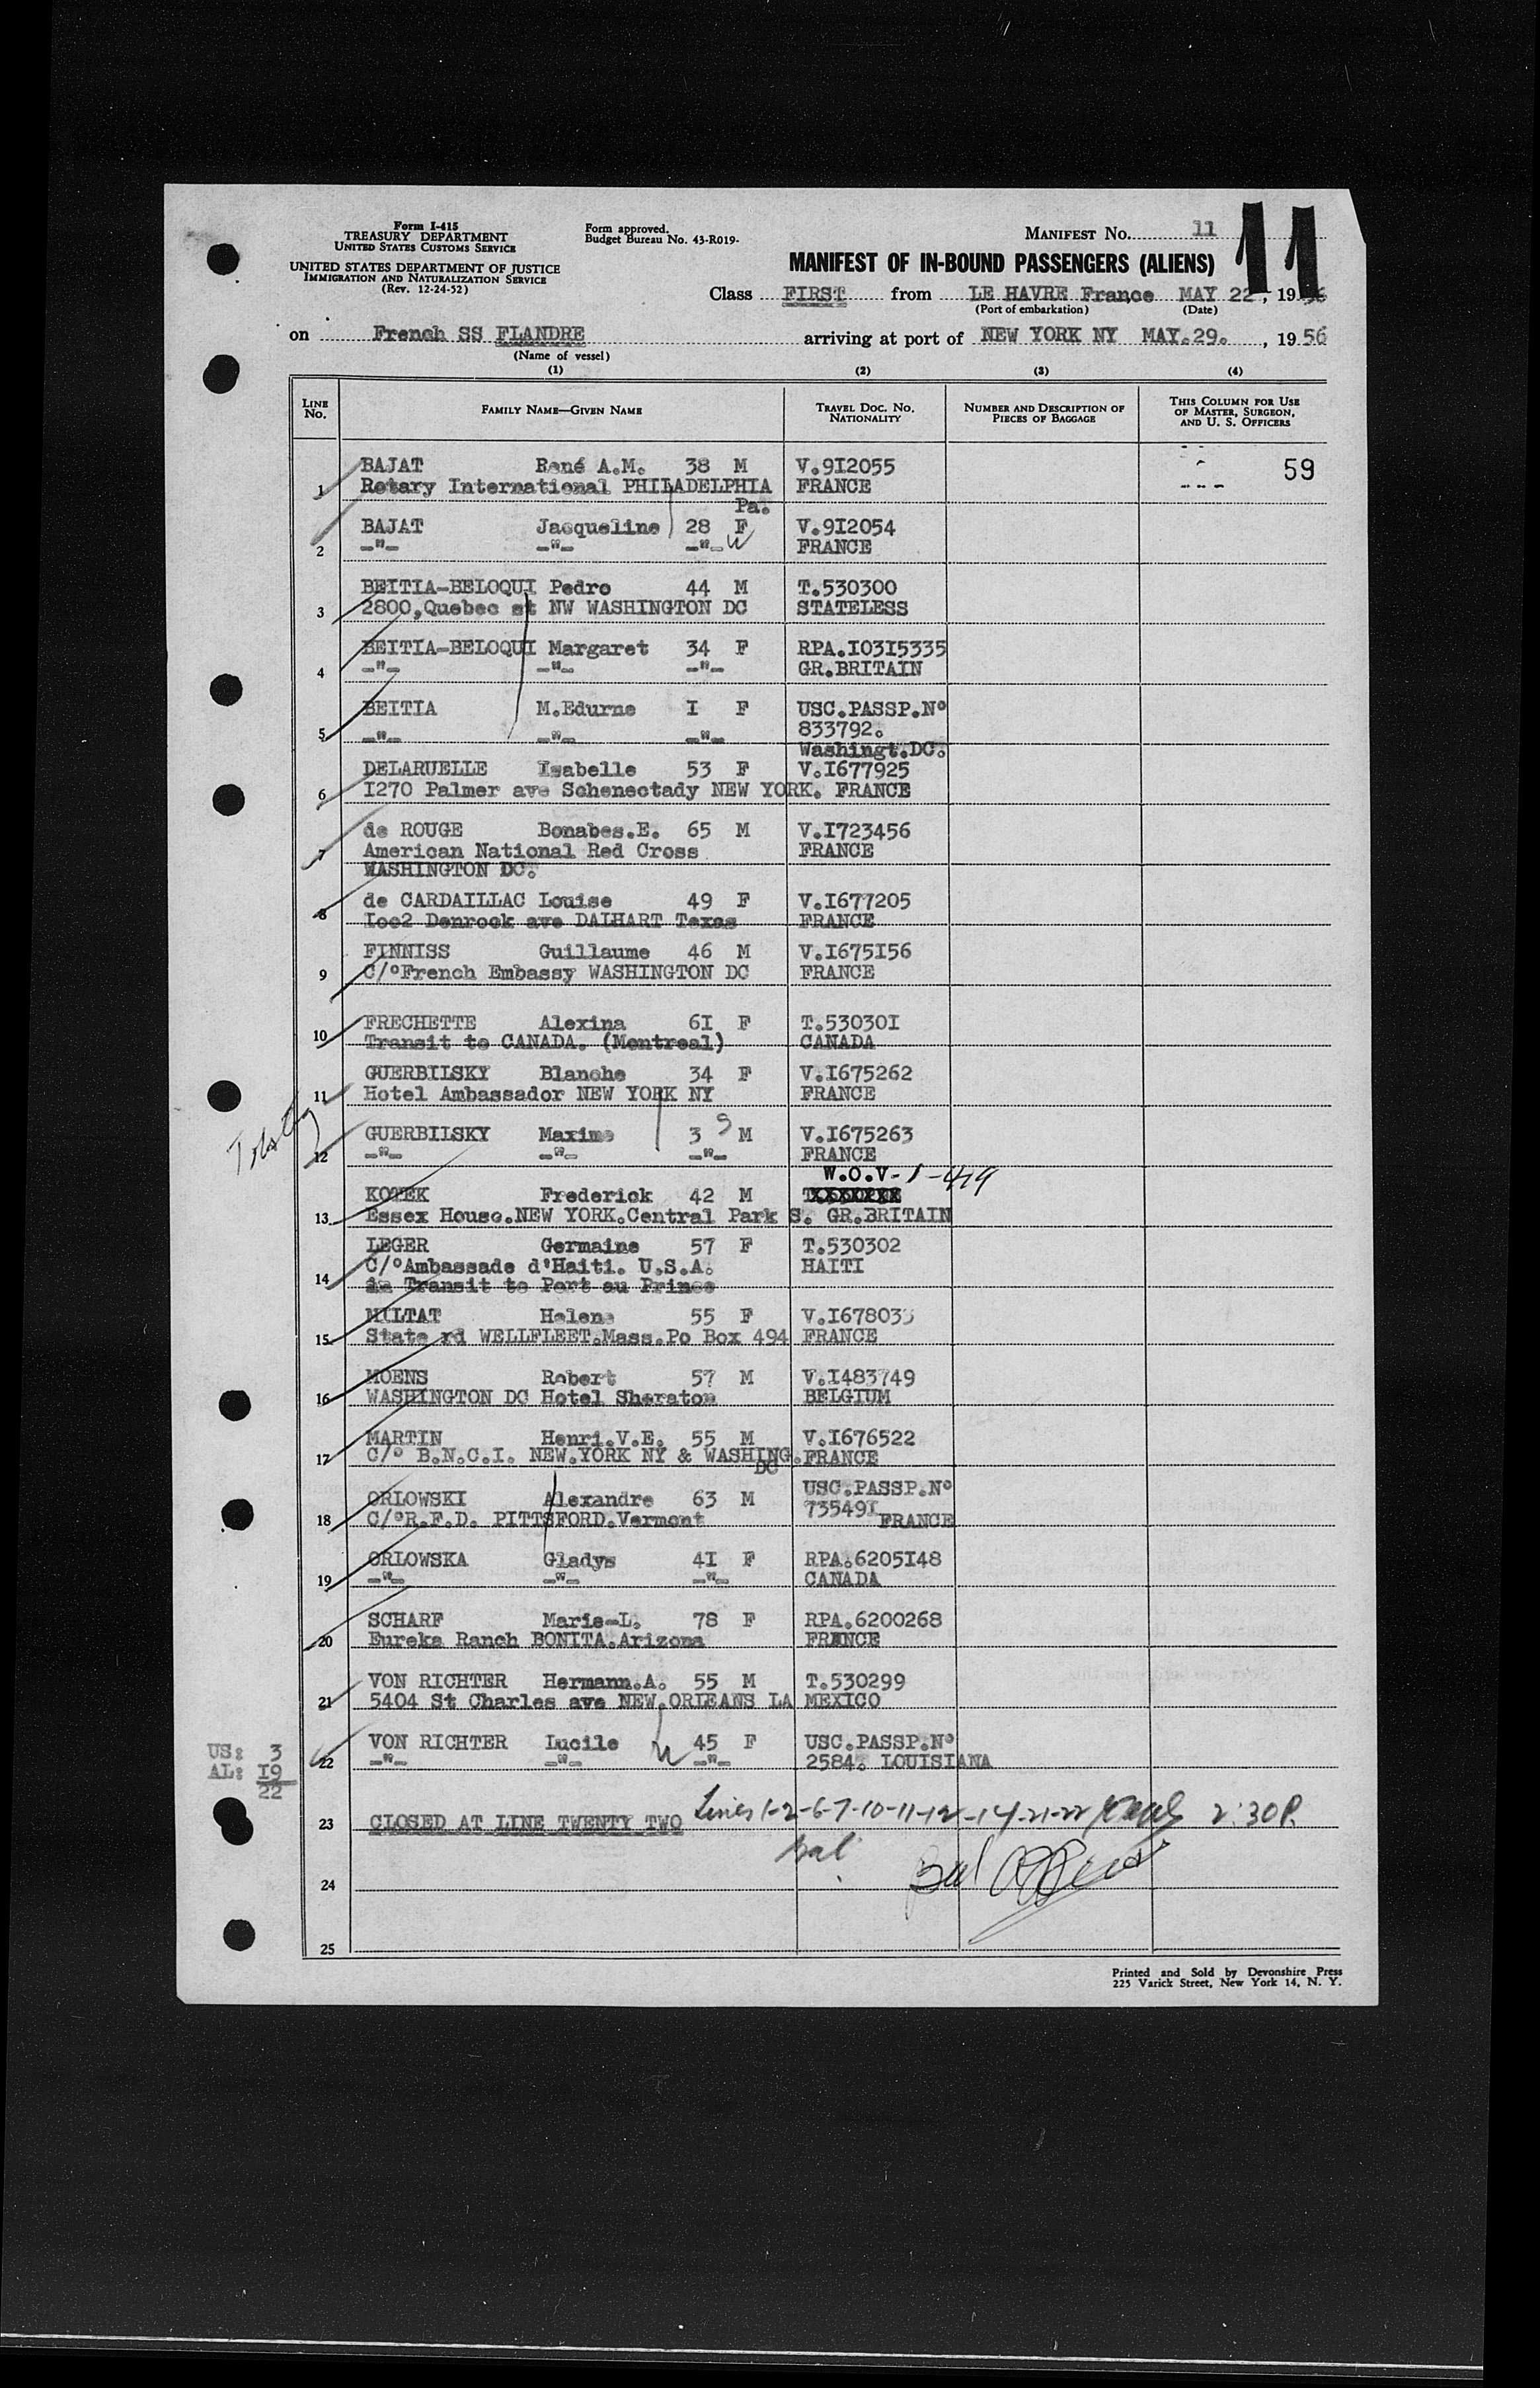 Form I-415
TREASURY DEPARTMENT
UNITED STATES CUSTOMS SERVICE
UNITED STATES DEPARTMENT OF JUSTICE
IMMIGRATION AND NATURALIZATION SERVICE
(Rev. 12-24-52)
Form approved.
Budget Bureau No. 43-R019-
MANIFEST No. 11
11
MANIFEST OF IN-BOUND PASSENGERS (ALIENS)
Class FIRST from LE HAVRE France MAY 22, 1956
(Port of embarkation) (Date)
on French SS FLANDRE arriving at port of NEW YORK NY MAY.29. , 1956
(Name of vessel)
(1) (2) (3) (4)
LINE No. FAMILY NAME—GIVEN NAME TRAVEL DOC. NO. NATIONALITY NUMBER AND DESCRIPTION OF PIECES OF BAGGAGE THIS COLUMN FOR USE OF MASTER, SURGEON, AND U. S. OFFICERS
BAJAT René A.M. 38 M V.9I2055 59
1 Rotary International PHILADELPHIA FRANCE
Pa.
BAJAT Jacqueline 28 F V.9I2054
2 -"- -"- -"- FRANCE
BEITIA-BELOQUI Pedro 44 M T.530300
3 2800,Quebec st NW WASHINGTON DC STATELESS
BEITIA-BELOQUI Margaret 34 F RPA.I03I5335
4 -"- -"- -"- GR.BRITAIN
BEITIA M.Edurne I F USC.PASSP.N°
5 -"- -"- -"- 833792.
Washingt.DC.
DELARUELLE Isabelle 53 F V.I677925
6 I270 Palmer ave Schenectady NEW YORK. FRANCE
de ROUGE Bonabes.E. 65 M V.I723456
7 American National Red Cross FRANCE
WASHINGTON DC.
de CARDAILLAC Louise 49 F V.I677205
8 Ioo2 Denrock ave DALHART Texas FRANCE
FINNISS Guillaume 46 M V.I675I56
9 C/°French Embassy WASHINGTON DC FRANCE
FRECHETTE Alexina 6I F T.53030I
10 Transit to CANADA. (Montreal) CANADA
GUERBILSKY Blanche 34 F V.I675262
11 Hotel Ambassador NEW YORK NY FRANCE
GUERBILSKY Maxime 3 M V.I675263
12 -"- -"- -"- FRANCE
W.O.V-1-419
KOTEK Frederick 42 M
13 Essex House.NEW YORK.Central Park S. GR.BRITAIN
LEGER Germaine 57 F T.530302
C/°Ambassade d'Haiti. U.S.A. HAITI
14 in Transit to Port au Prince
MULTAT Helene 55 F V.I678035
15 State rd WELLFLEET.Mass.Po Box 494 FRANCE
MOENS Robert 57 M V.I483749
16 WASHINGTON DC Hotel Sheraton BELGIUM
MARTIN Henri.V.E. 55 M V.I676522
17 C/° B.N.C.I. NEW.YORK NY & WASHING. FRANCE
DC
ORLOWSKI Alexandre 63 M USC.PASSP.N°
18 C/°R.F.D. PITTSFORD.Vermont 73549I FRANCE
ORLOWSKA Gladys 4I F RPA.6205I48
19 -"- -"- -"- CANADA
SCHARF Marie-L. 78 F RPA.6200268
20 Eureka Ranch BONITA.Arizona FRANCE
VON RICHTER Hermann.A. 55 M T.530299
21 5404 St Charles ave NEW.ORLEANS LA MEXICO
VON RICHTER Lucile 45 F USC.PASSP.N°
22 -"- -"- -"- 2584. LOUISIANA
US: 3
AL: I9
22
23 CLOSED AT LINE TWENTY TWO Lines 1-2-6-7-10-11-12-14-21-22 2:30P.
Bal
24
25
Printed and Sold by Devonshire Press
225 Varick Street, New York 14, N. Y.